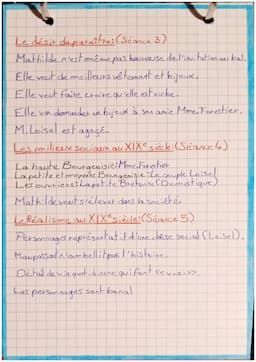 Le désir de paraître: (Séance 3)
Mathilde n'est même pas heureuse de l'invitation au bal.
Elle veut de meilleurs vêtement et bijoux.
Elle veut faire croire qu'elle est riche.
Elle va demander un bijoux à son amie Mme. Forestier.
M. Loisel est agacé.
Les milieux sociaux au XIXe siècle: (Séance 4)
La haute Bourgeoisie: Mme Forestier
La petite et moyenne Bourgeoisie: Le couple Loisel
Les ouvriers: La petite Bretonne (Domestique)
Mathilde veut s'élever dans la société.
Le Réalisme au XIXe siècle: (Séance 5)
Personnages représentatif d'une classe social (Loisel).
Maupassant n'embellit pas l'histoire.
Détail de vie quotidienne qui font
Les personnages sont banal